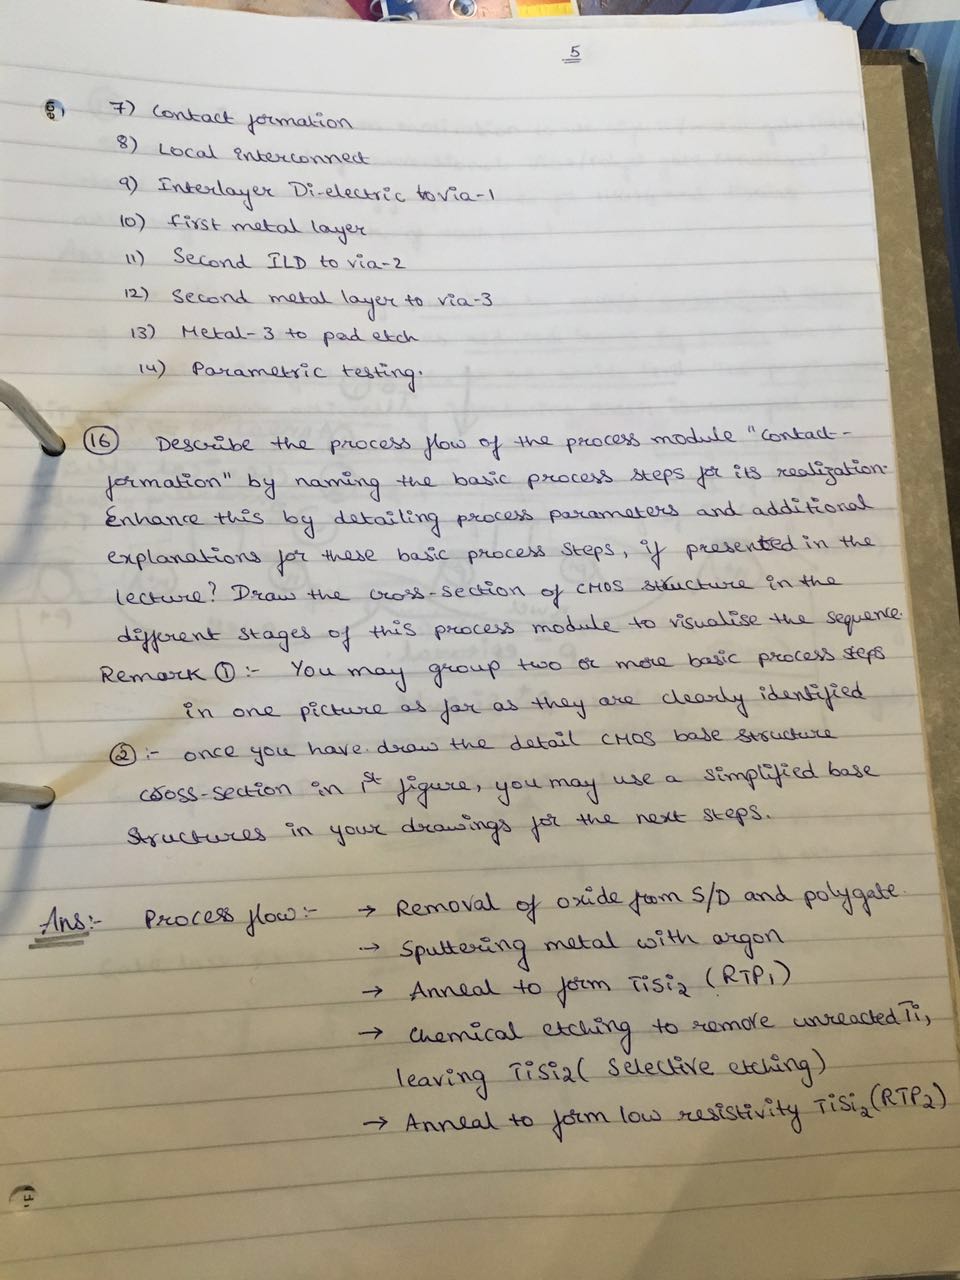 5
7) Contact formation
8) Local interconnect
9) Interlayer Di-electric to via-1
10) first metal layer
11) Second ILD to via-2
12) Second metal layer to via-3
13) Metal-3 to pad etch
14) Parametric testing.
16 Describe the process flow of the process module "contact-
formation" by naming the basic process steps for its realization.
Enhance this by detailing process parameters and additional
explanations for these basic process steps, if presented in the
lecture? Draw the cross-section of CMOS structure in the
different stages of this process module to visualise the sequence.
Remark ① :- You may group two or more basic process steps
in one picture as far as they are clearly identified
② :- once you have draw the detail CMOS base structure
cross-section in 1st figure, you may use a simplified base
structures in your drawings for the next steps.
Ans:- Process flow:- → Removal of oxide from S/D and polygate.
→ Sputtering metal with argon
→ Anneal to form TiSi2 (RTP1)
→ Chemical etching to remove unreacted Ti,
leaving TiSi2 ( selective etching)
→ Anneal to form low resistivity TiSi2 (RTP2)